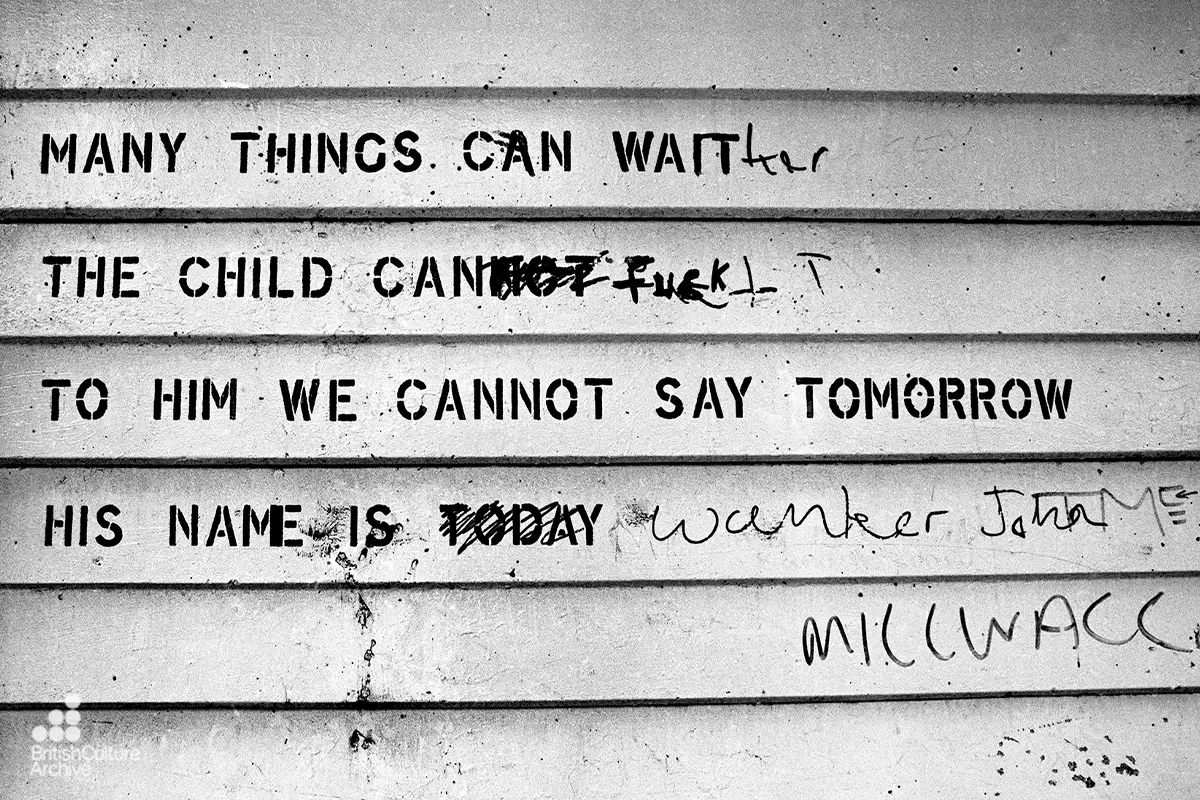 MANY THINGS CAN WAIT ker
THE CHILD CANNOT Fuck IT
TO HIM WE CANNOT SAY TOMORROW
HIS NAME IS TODAY wanker
MILLWALL
BritishCulture
Archive